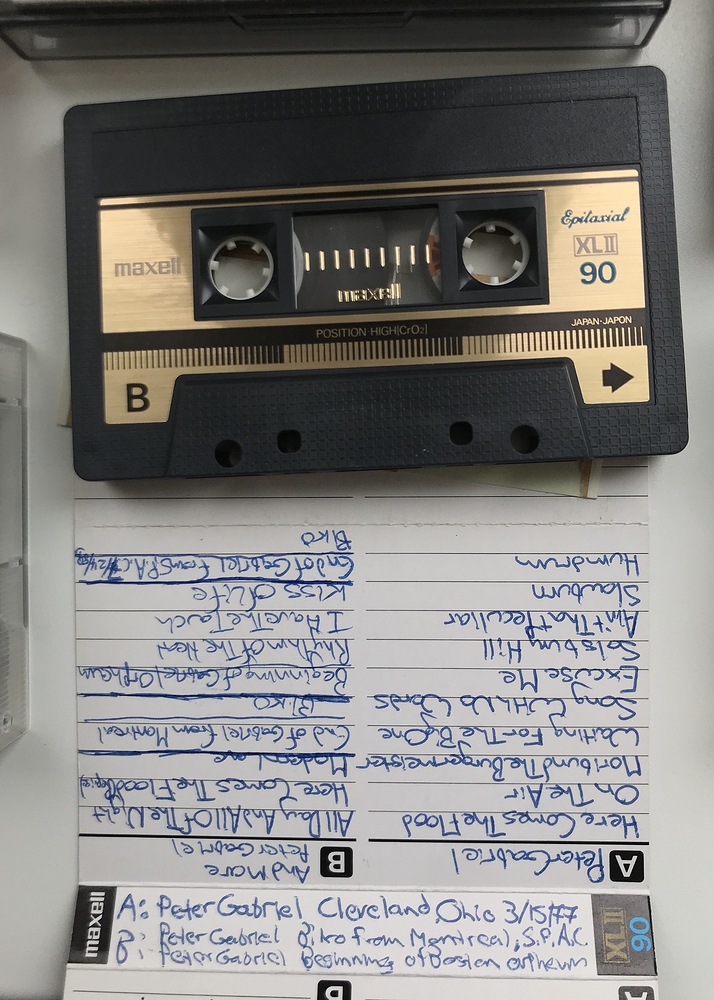 Epitaxial
maxell
XLII
90
maxell
POSITION·HIGH(CrO2)
JAPAN·JAPON
B
A Peter Gabriel
Here Comes The Flood
On The Air
Moribund The Burgermeister
Waiting For The Big One
Song With No Words
Excuse Me
Solsbury Hill
Ain't That Peculiar
Slowburn
Humdrum
B Peter Gabriel
And more
All Day And All Of The Night
Here Comes The Flood
Modern Love
End of Gabriel from Montreal
Biko
Beginning of Gabriel Orpheum
Rhythm Of The Heat
I Have The Touch
Kiss Of Life
End of Gabriel From S.P.A.C.
Biko
maxell
A: Peter Gabriel Cleveland, Ohio 3/15/77
B: Peter Gabriel Biko from Montreal, S.P.A.C.
B: Peter Gabriel Beginning of Boston orpheum
XLII
90
B
A